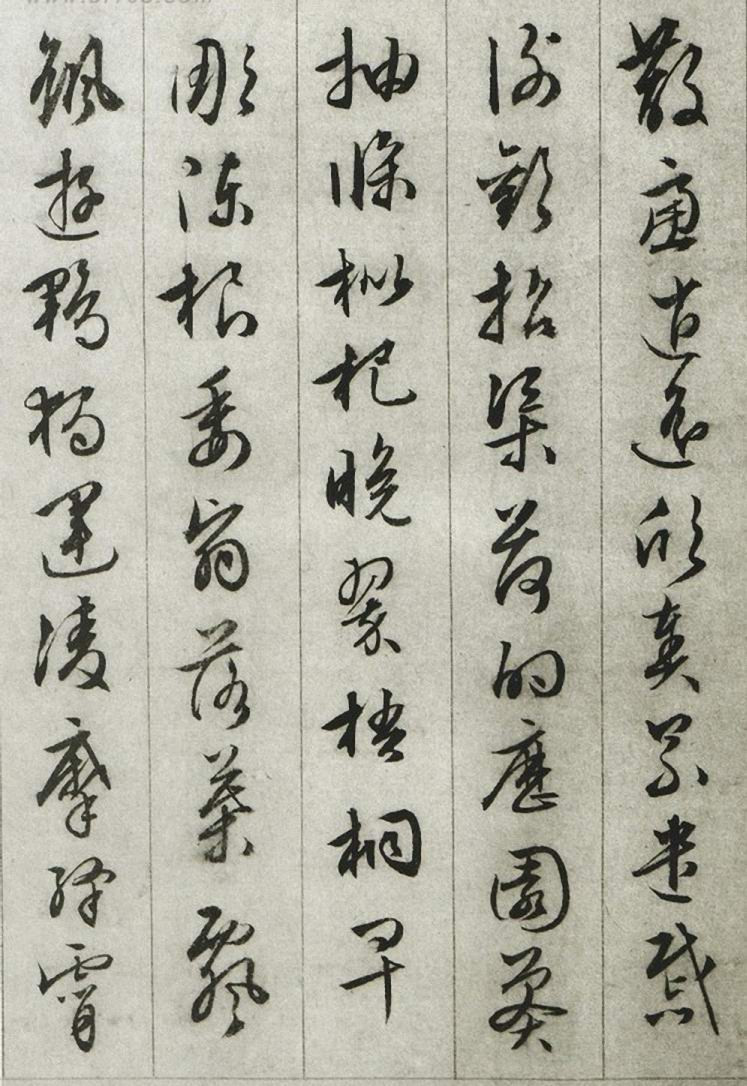 散慮逍遙欣奏累遣慼
謝歡招渠荷的歷園莽
抽條枇杷晚翠梧桐早
彫陳根委翳落葉飄
颻遊鵾獨運凌摩絳霄